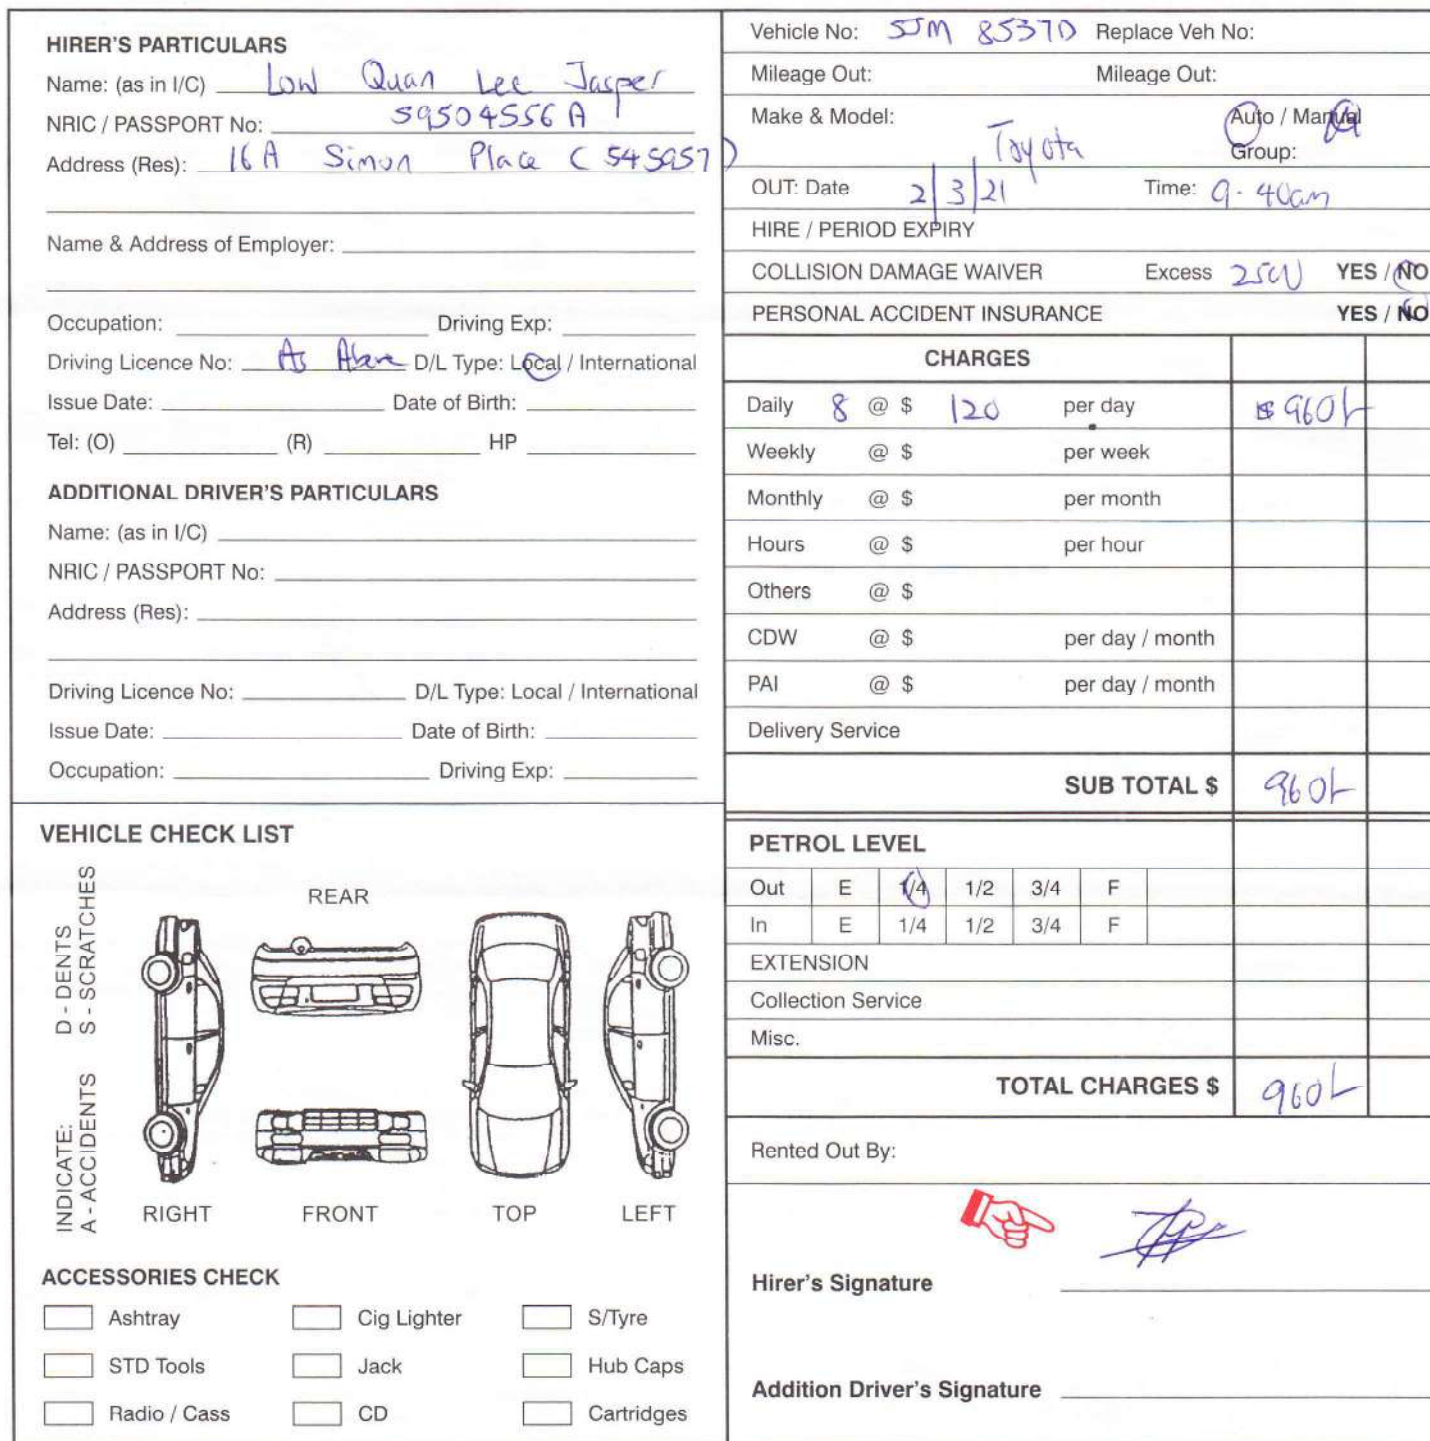 HIRER'S PARTICULARS
Name: (as in I/C) Low Quan Lee Jasper
NRIC / PASSPORT No: S9504556A
Address (Res): 16A Simon Place (545957)
Name & Address of Employer:
Occupation: Driving Exp:
Driving Licence No: As Above D/L Type: Local / International
Issue Date: Date of Birth:
Tel: (O) (R) HP
ADDITIONAL DRIVER'S PARTICULARS
Name: (as in I/C)
NRIC / PASSPORT No:
Address (Res):
Driving Licence No: D/L Type: Local / International
Issue Date: Date of Birth:
Occupation: Driving Exp:
VEHICLE CHECK LIST
INDICATE: D - DENTS
A - ACCIDENTS S - SCRATCHES
REAR
RIGHT FRONT TOP LEFT
ACCESSORIES CHECK
Ashtray Cig Lighter S/Tyre
STD Tools Jack Hub Caps
Radio / Cass CD Cartridges
Vehicle No: SJM 8537D Replace Veh No:
Mileage Out: Mileage Out:
Make & Model: Toyota Auto / Manual
Group:
OUT: Date 2/3/21 Time: 9.40am
HIRE / PERIOD EXPIRY
COLLISION DAMAGE WAIVER Excess YES / NO
PERSONAL ACCIDENT INSURANCE YES / NO
CHARGES
Daily 8 @ $ 120 per day $960/-
Weekly @ $ per week
Monthly @ $ per month
Hours @ $ per hour
Others @ $
CDW @ $ per day / month
PAI @ $ per day / month
Delivery Service
SUB TOTAL $ 960/-
PETROL LEVEL
Out E 1/4 1/2 3/4 F
In E 1/4 1/2 3/4 F
EXTENSION
Collection Service
Misc.
TOTAL CHARGES $ 960/-
Rented Out By:
Hirer's Signature
Addition Driver's Signature